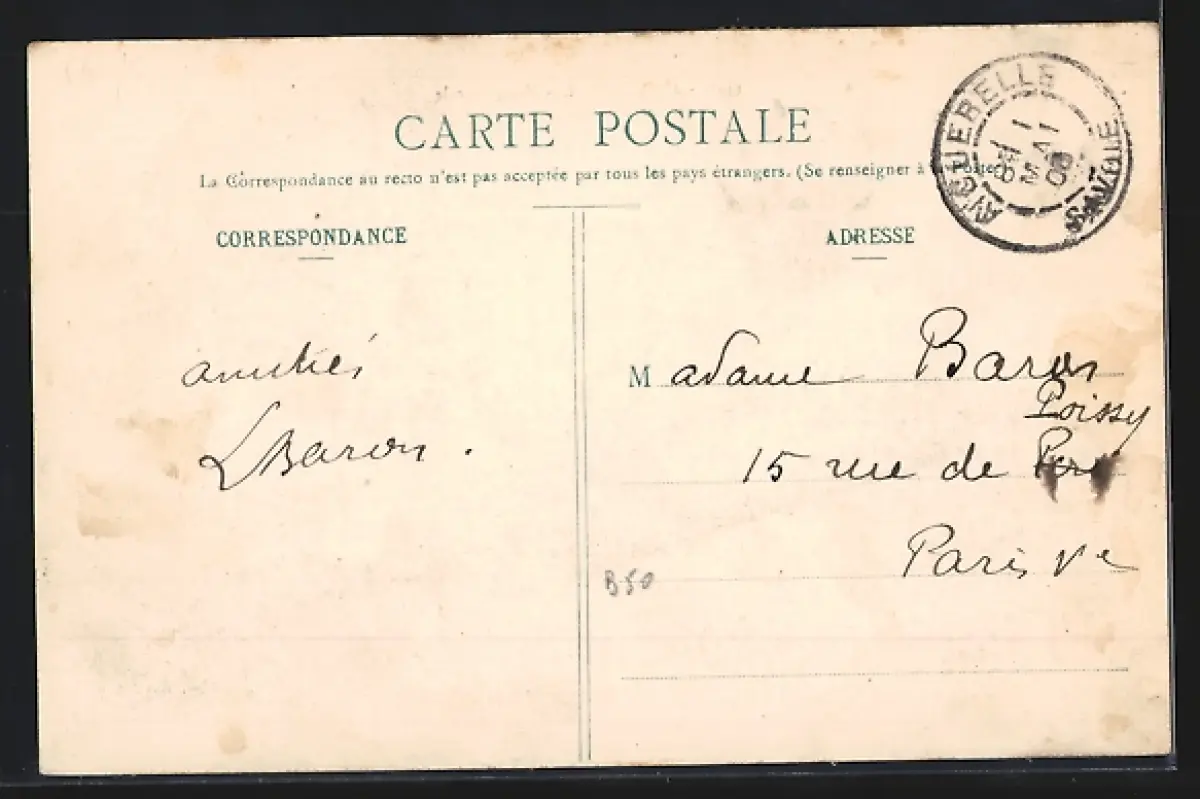 CARTE POSTALE
La Correspondance au recto n'est pas acceptée par tous les pays étrangers. (Se renseigner à la Poste
CORRESPONDANCE
amitiés
LBaron.
ADRESSE
Madame Baron
Poissy
15 rue de
Paris Ve
B50
AIGUEBELLE
1
MAI
08
SAVOIE